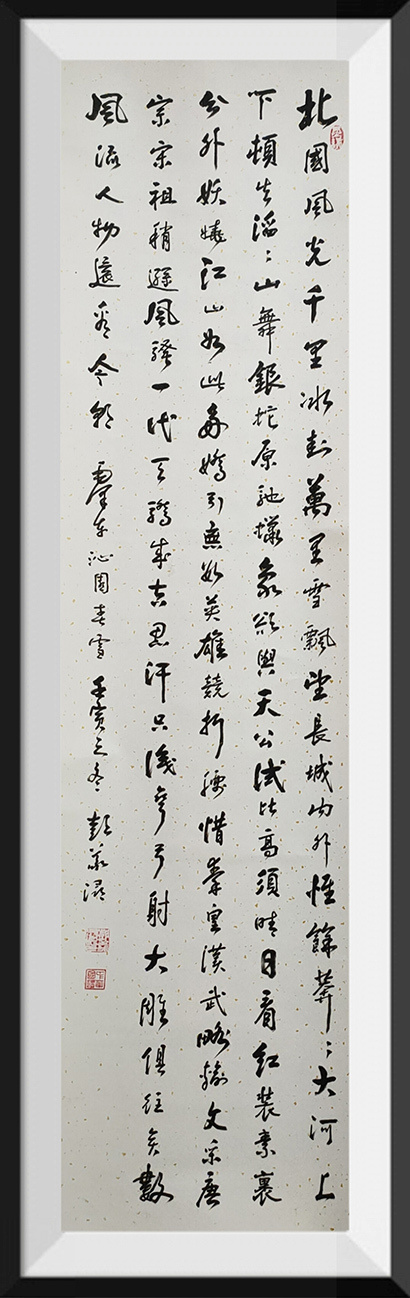 北國風光千里冰封萬里雪飄望長城内外惟餘莽〻大河上
下頓失滔〻山舞銀蛇原馳蠟象欲與天公試比高須晴日看紅裝素裹
分外妖嬈江山如此多嬌引無數英雄競折腰惜秦皇漢武略輸文采唐
宗宋祖稍遜風騷一代天驕成吉思汗只識彎弓射大雕俱往矣數
風流人物還看今朝 澤东沁園春雪 壬寅之冬 彭